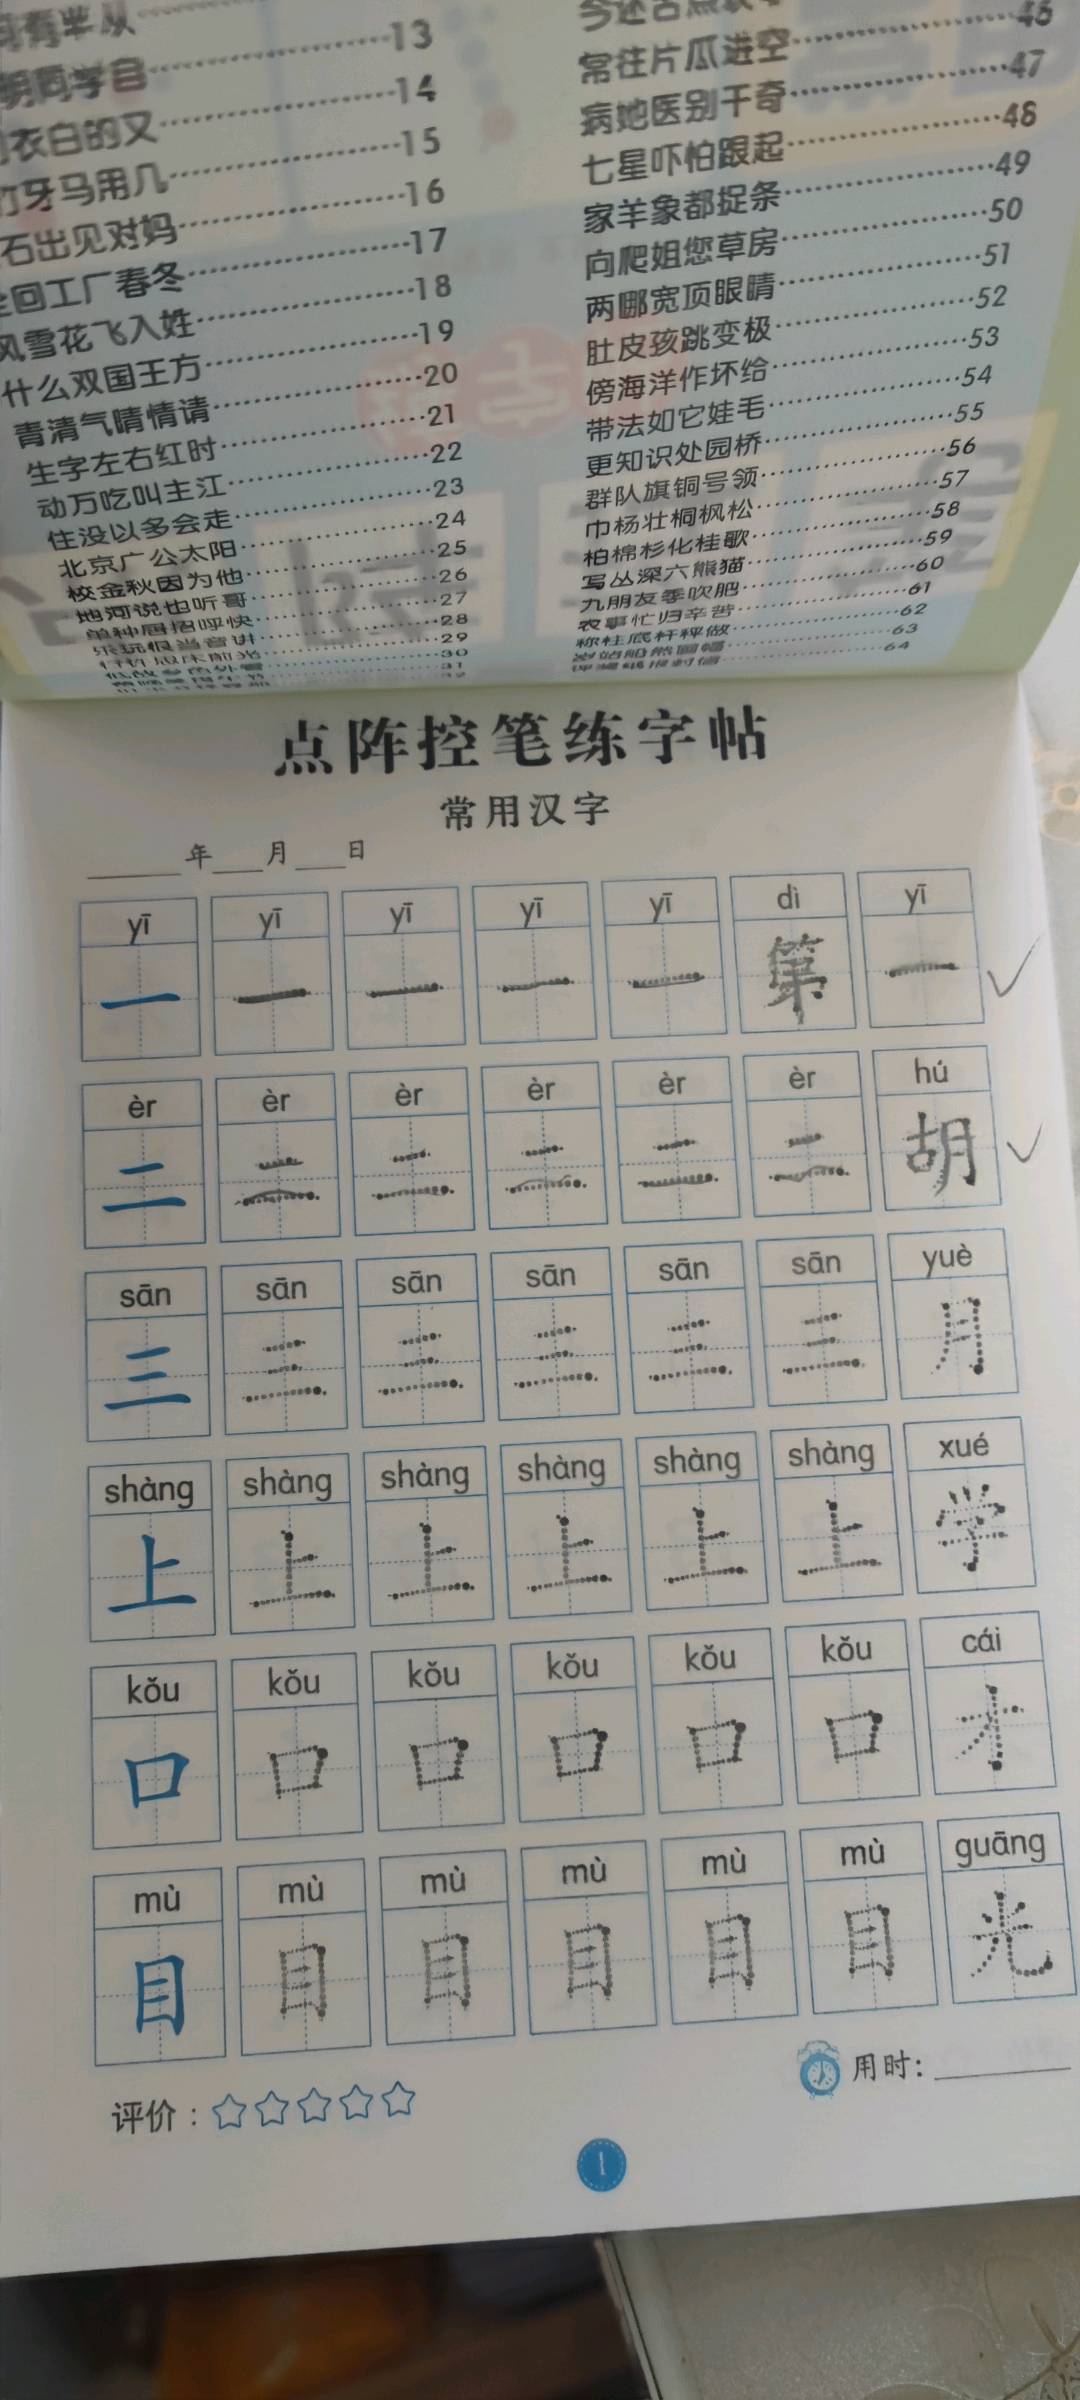 明同学自……13
衣白的又……14
竹牙马用几……15
石出见对妈……16
全回工厂春冬……17
风雪花飞入姓……18
什么双国王方……19
青清气晴情请……20
生字左右红时……21
动万吃叫主江……22
住没以多会走……23
北京广公太阳……24
校金秋因为他……25
地河说也听哥……26
单种居招呼快……27
乐玩很当音讲……28
29
30
31
32
46
常往片瓜进空……47
病她医别干奇……48
七星吓怕跟起……49
家羊象都捉条……50
向爬姐您草房……51
两哪宽顶眼睛……52
肚皮孩跳变极……53
傍海洋作坏给……54
带法如它娃毛……55
更知识处园桥……56
群队旗铜号领……57
巾杨壮桐枫松……58
柏棉杉化桂歌……59
写丛深六熊猫……60
九朋友季吹肥……61
农事忙归辛苦……62
称柱底杆秤做……63
64
点阵控笔练字帖
常用汉字
年 月 日
yī yī yī yī yī dì yī
一 一 一 一 一 第 一
èr èr èr èr èr èr hú
二 二 二 二 二 二 胡
sān sān sān sān sān sān yuè
三 三 三 三 三 三 月
shàng shàng shàng shàng shàng shàng xué
上 上 上 上 上 上 学
kǒu kǒu kǒu kǒu kǒu kǒu cái
口 口 口 口 口 口 才
mù mù mù mù mù mù guāng
目 目 目 目 目 目 光
用时：
评价：
1